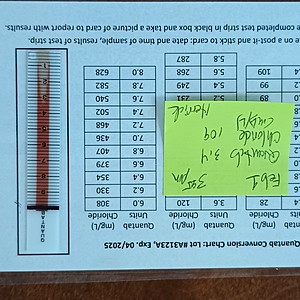 Quantab Conversion Chart: Lot #A3123A, Exp. 04/2025
Quantab (mg/L) Quantab (mg/L) Quantab (mg/L)
Units Chloride Units Chloride Units Chloride
28 3.6 120 6.0 308
6.2 330
6.4 354
6.6 379
6.8 407
7.0 436
7.2 468
7.4 502
5.2 231 7.6 540
99 5.4 249 7.8 582
109 5.6 268 8.0 628
5.8 287
Feb 1
pm
Quantab 3.4
Chloride 109
(mg/L)
QUANTAB
9
8
7
6
5
4
3
2
1
on a post-it and stick to card: date and time of sample, results of test strip.
completed test strip in black box and take a picture of card to report with results.